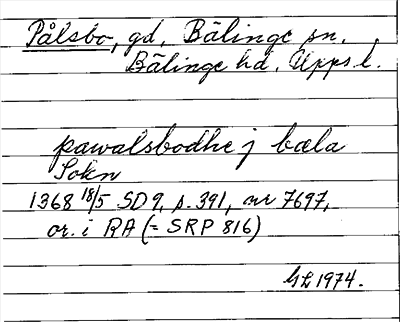 Pålsbo, gd, Bälinge sn.
Bälinge hd. Upps l.
pawalsbodhe j bæla
Sokn
1368 18/5 SD 9, s. 391, nr 7697,
or. i RA (= SRP 816)
GL 1974.